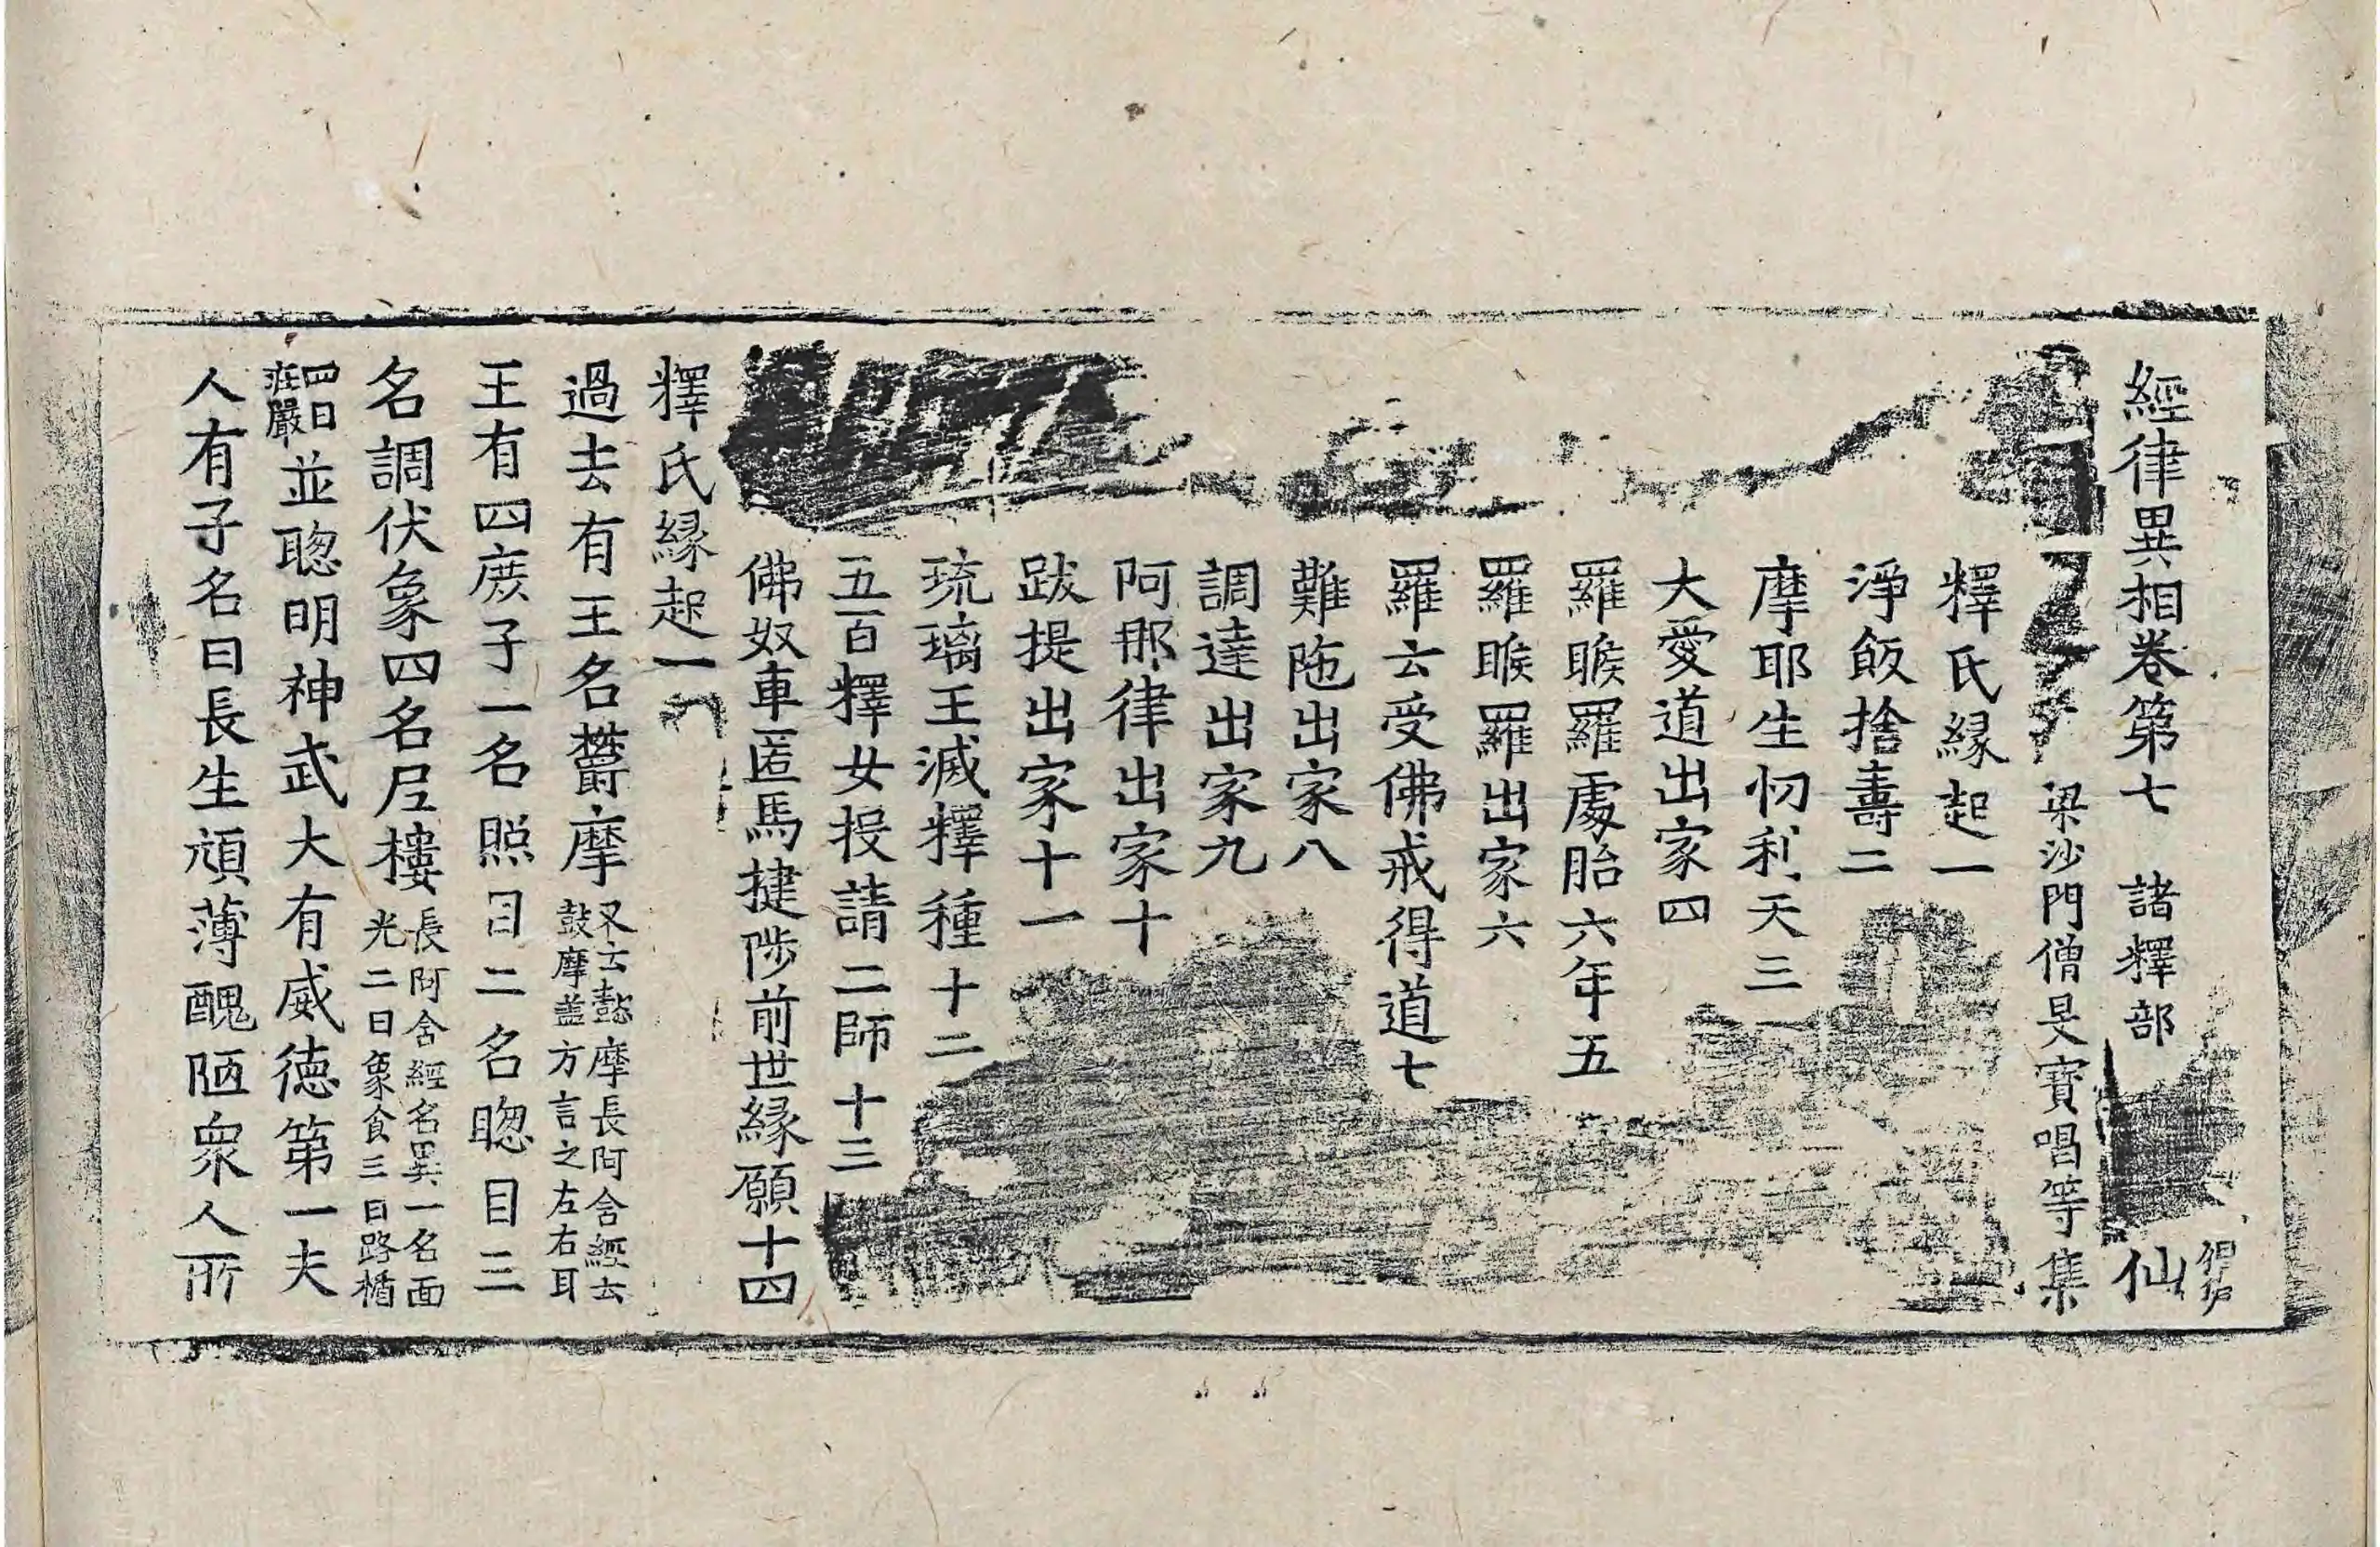 經律異相卷第七 諸釋部 仙
梁沙門僧旻寶唱等集
釋氏緣起一
淨飯捨壽二
摩耶生忉利天三
大愛道出家四
羅睺羅處胎六年五
羅睺羅出家六
羅云受佛戒得道七
難陁出家八
調達出家九
阿那律出家十
跋提出家十一
琉璃王滅釋種十二
五百釋女投請二師十三
佛奴車匿馬揵陟前世緣願十四
釋氏緣起一
過去有王名欝摩又云懿摩長阿含經云鼓摩盖方言之左右耳
王有四庻子一名照目二名聦目三
名調伏象四名尼樓長阿含經名異一名面光二曰象食三曰路楯
四曰莊嚴並聦明神武大有威德第一夫
人有子名曰長生頑薄醜陋衆人所